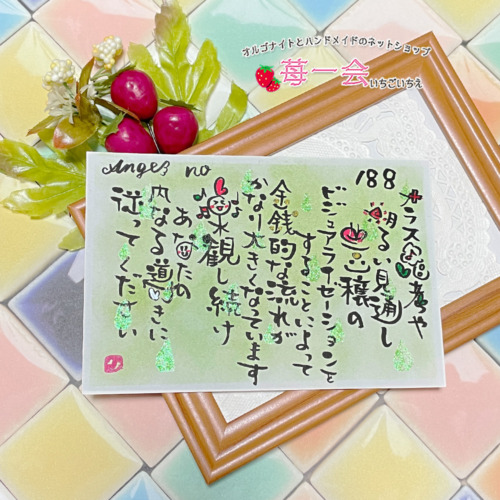 オルゴナイトとハンドメイドのネットショップ
苺一会
いちごいちえ
Angel no 188
プラス思考や
明るい見通し
豊穣の
ビジュアライゼーションを
することによって
金銭的な流れが
かなり大きくなっています
楽観し続け
あなたの
内なる導きに
従ってください